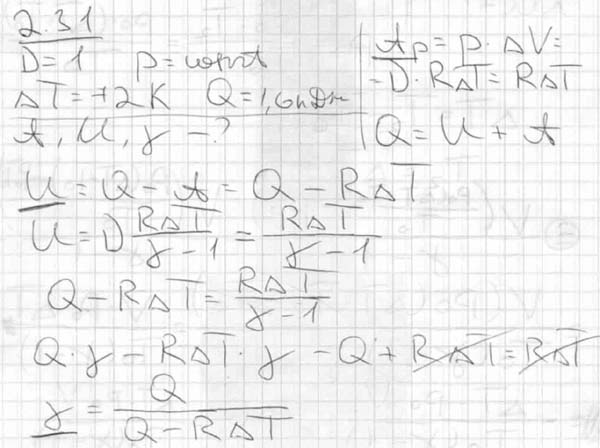 2.31
D=1 p=const
ΔT=+2K Q=1,6кДж
A, U, γ – ?
A_p = p·ΔV=
=D·RΔT=RΔT
Q=U+A
U=Q-A=Q-RΔT
U=D RΔT/γ-1 = RΔT/γ-1
Q-RΔT=RΔT/γ-1
Q·γ-RΔT·γ-Q+RΔT=RΔT
γ=Q/Q-RΔT